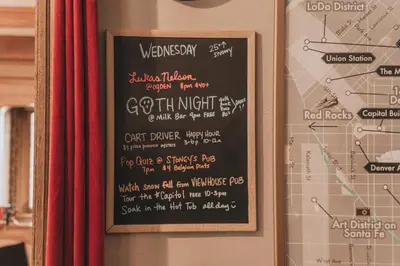 WEDNESDAY
25°↑
snowy
Lukas Nelson
@OGDEN 8pm $40+
GOTH NIGHT
@ Milk Bar 9pm FREE
CART DRIVER HAPPY HOUR
3-6p 10-12a
Pop Quiz @ STONEY'S PUB
7pm $4 Belgian Pints
Watch snow fall from VIEWHOUSE PUB
Tour the *Capitol FREE 10-3pm
Soak in the Hot Tub all day
LoDo District
Union Station
The M
Red Rocks
Capitol Bui
Denver A
Art District on
Santa Fe